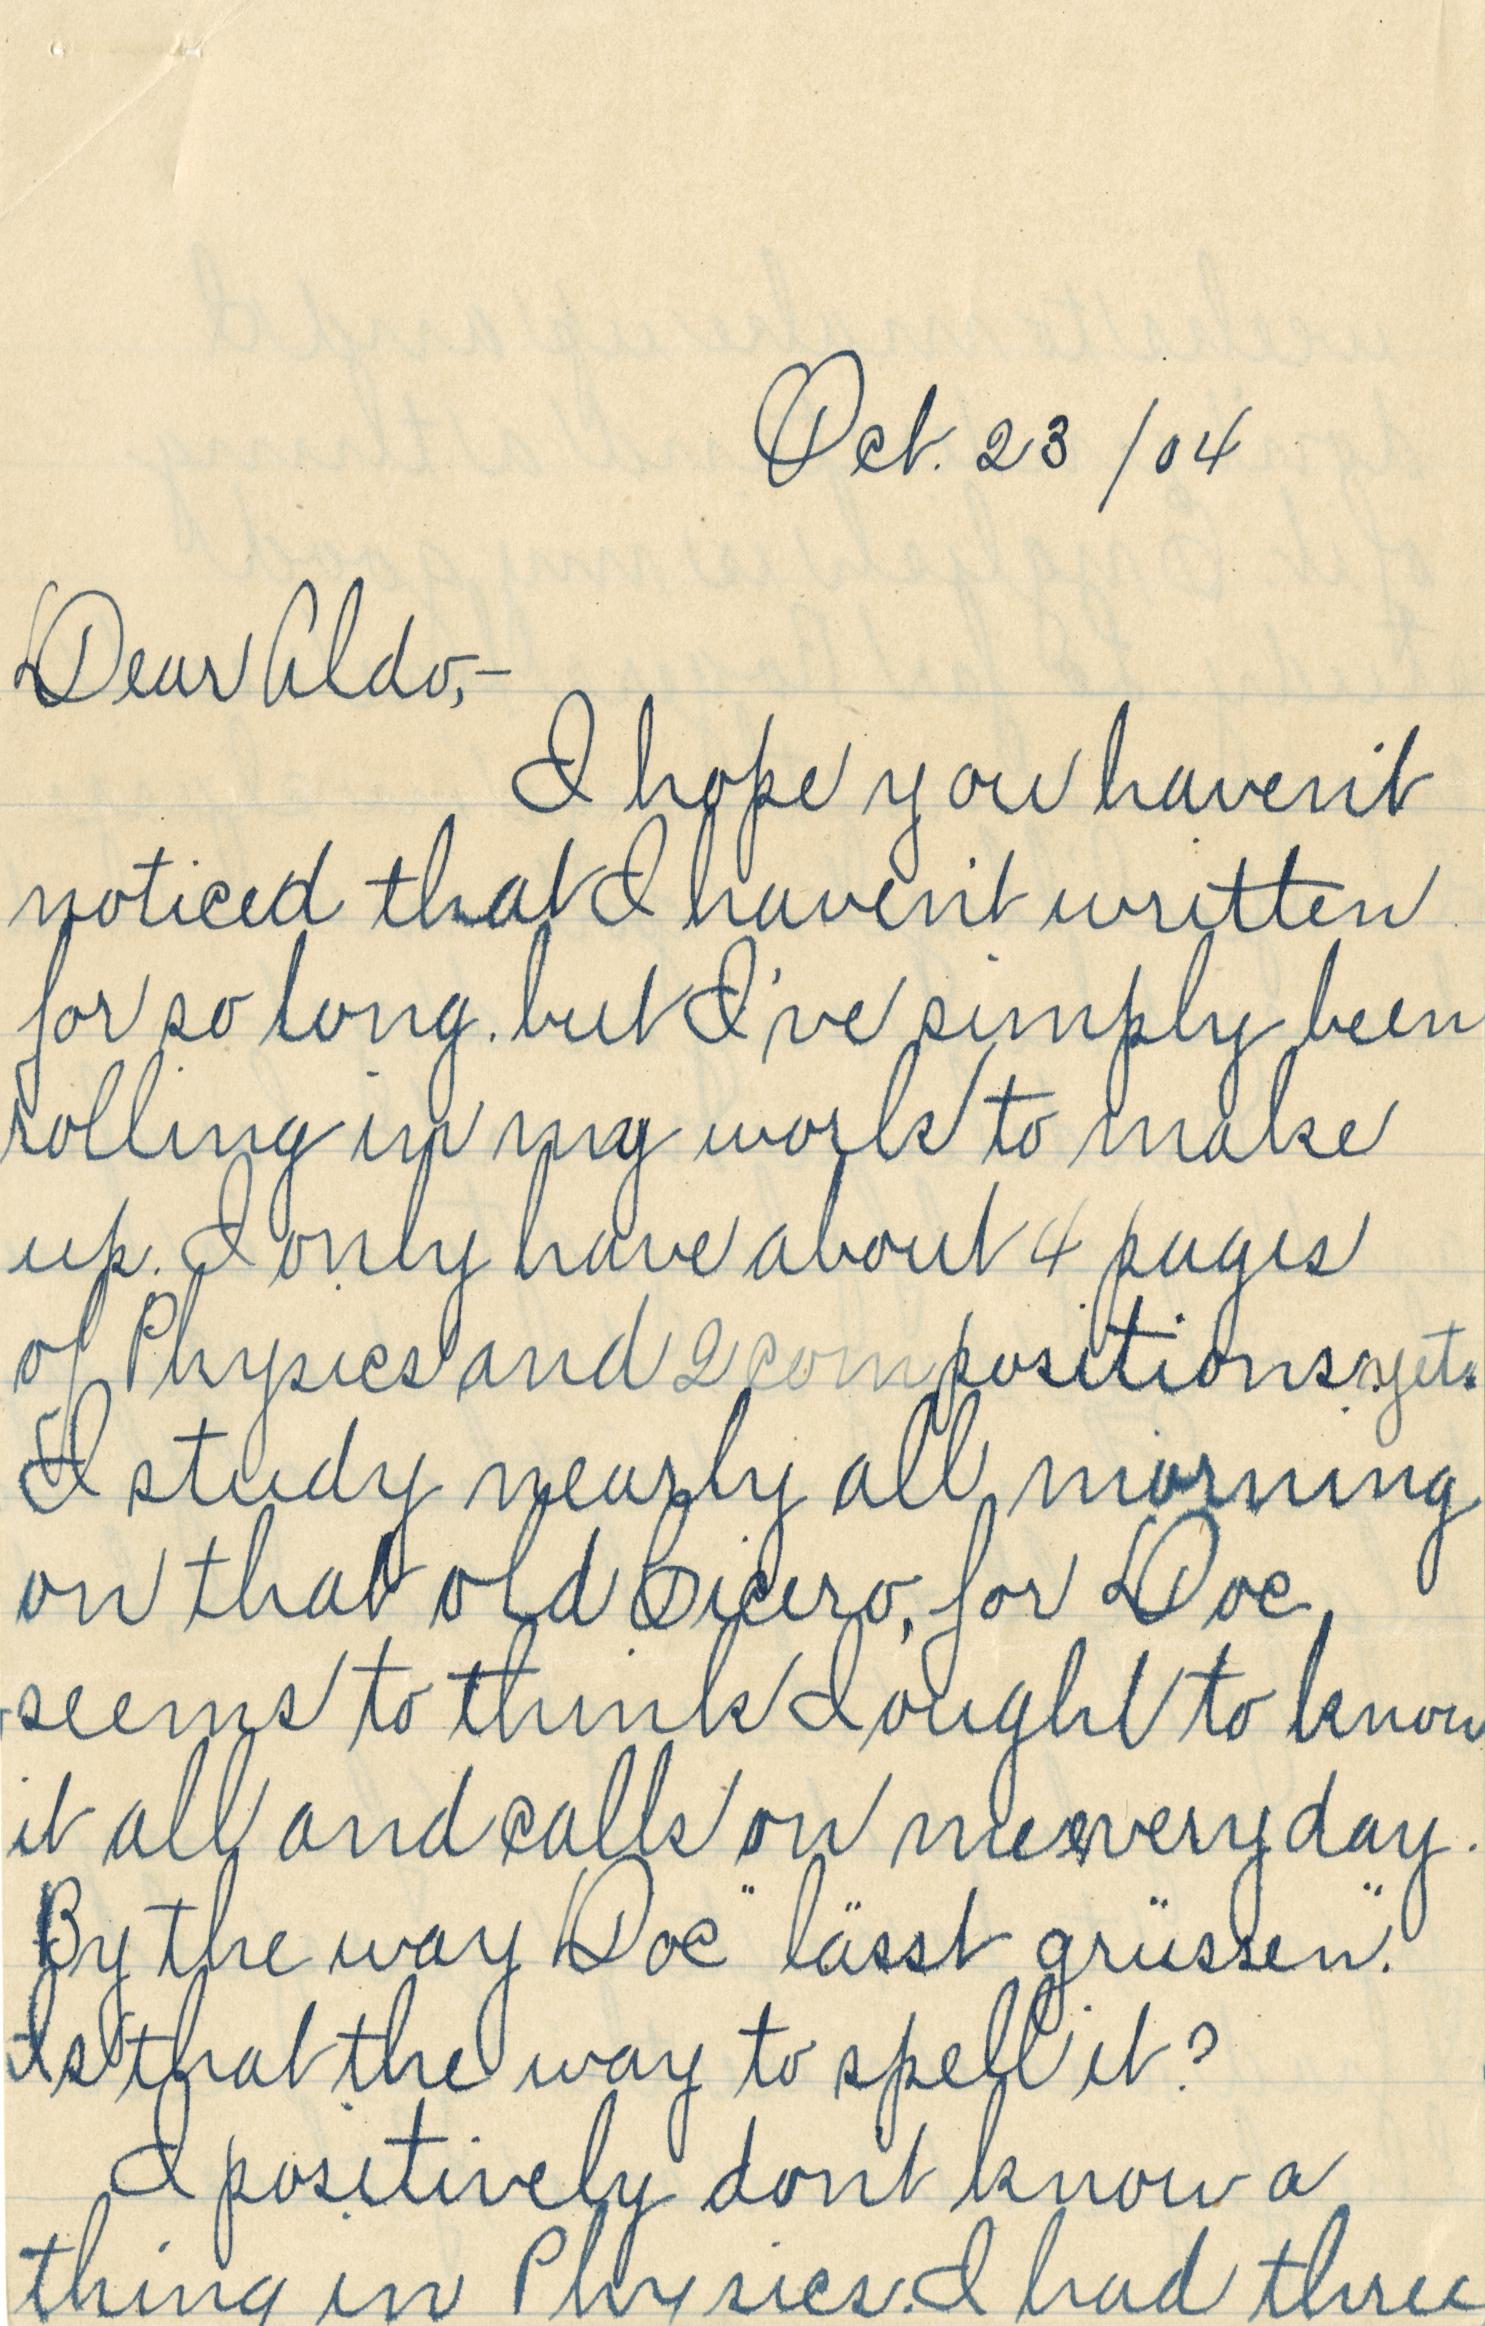 Oct. 23 /04
Dear Aldo,-
I hope you haven't
noticed that I haven't written
for so long. but I've simply been
rolling in my work to make
up. I only have about 4 pages
of Physics and 2 compositions yet.
I study nearly all morning
on that old Cicero, for Doc
seems to think I ought to know
it all and calls on me every day.
By the way Doc "lässt grüssen".
Is that the way to spell it?
I positively don't know a
thing in Physics. I had three